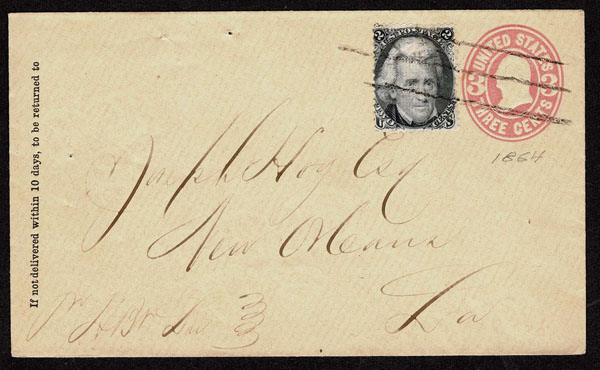 If not delivered within 10 days, to be returned to
U.S. POSTAGE
2 2
UNITED STATES
3 3
THREE CENTS
1864
Joseph Hoy Esq
New Orleans
La